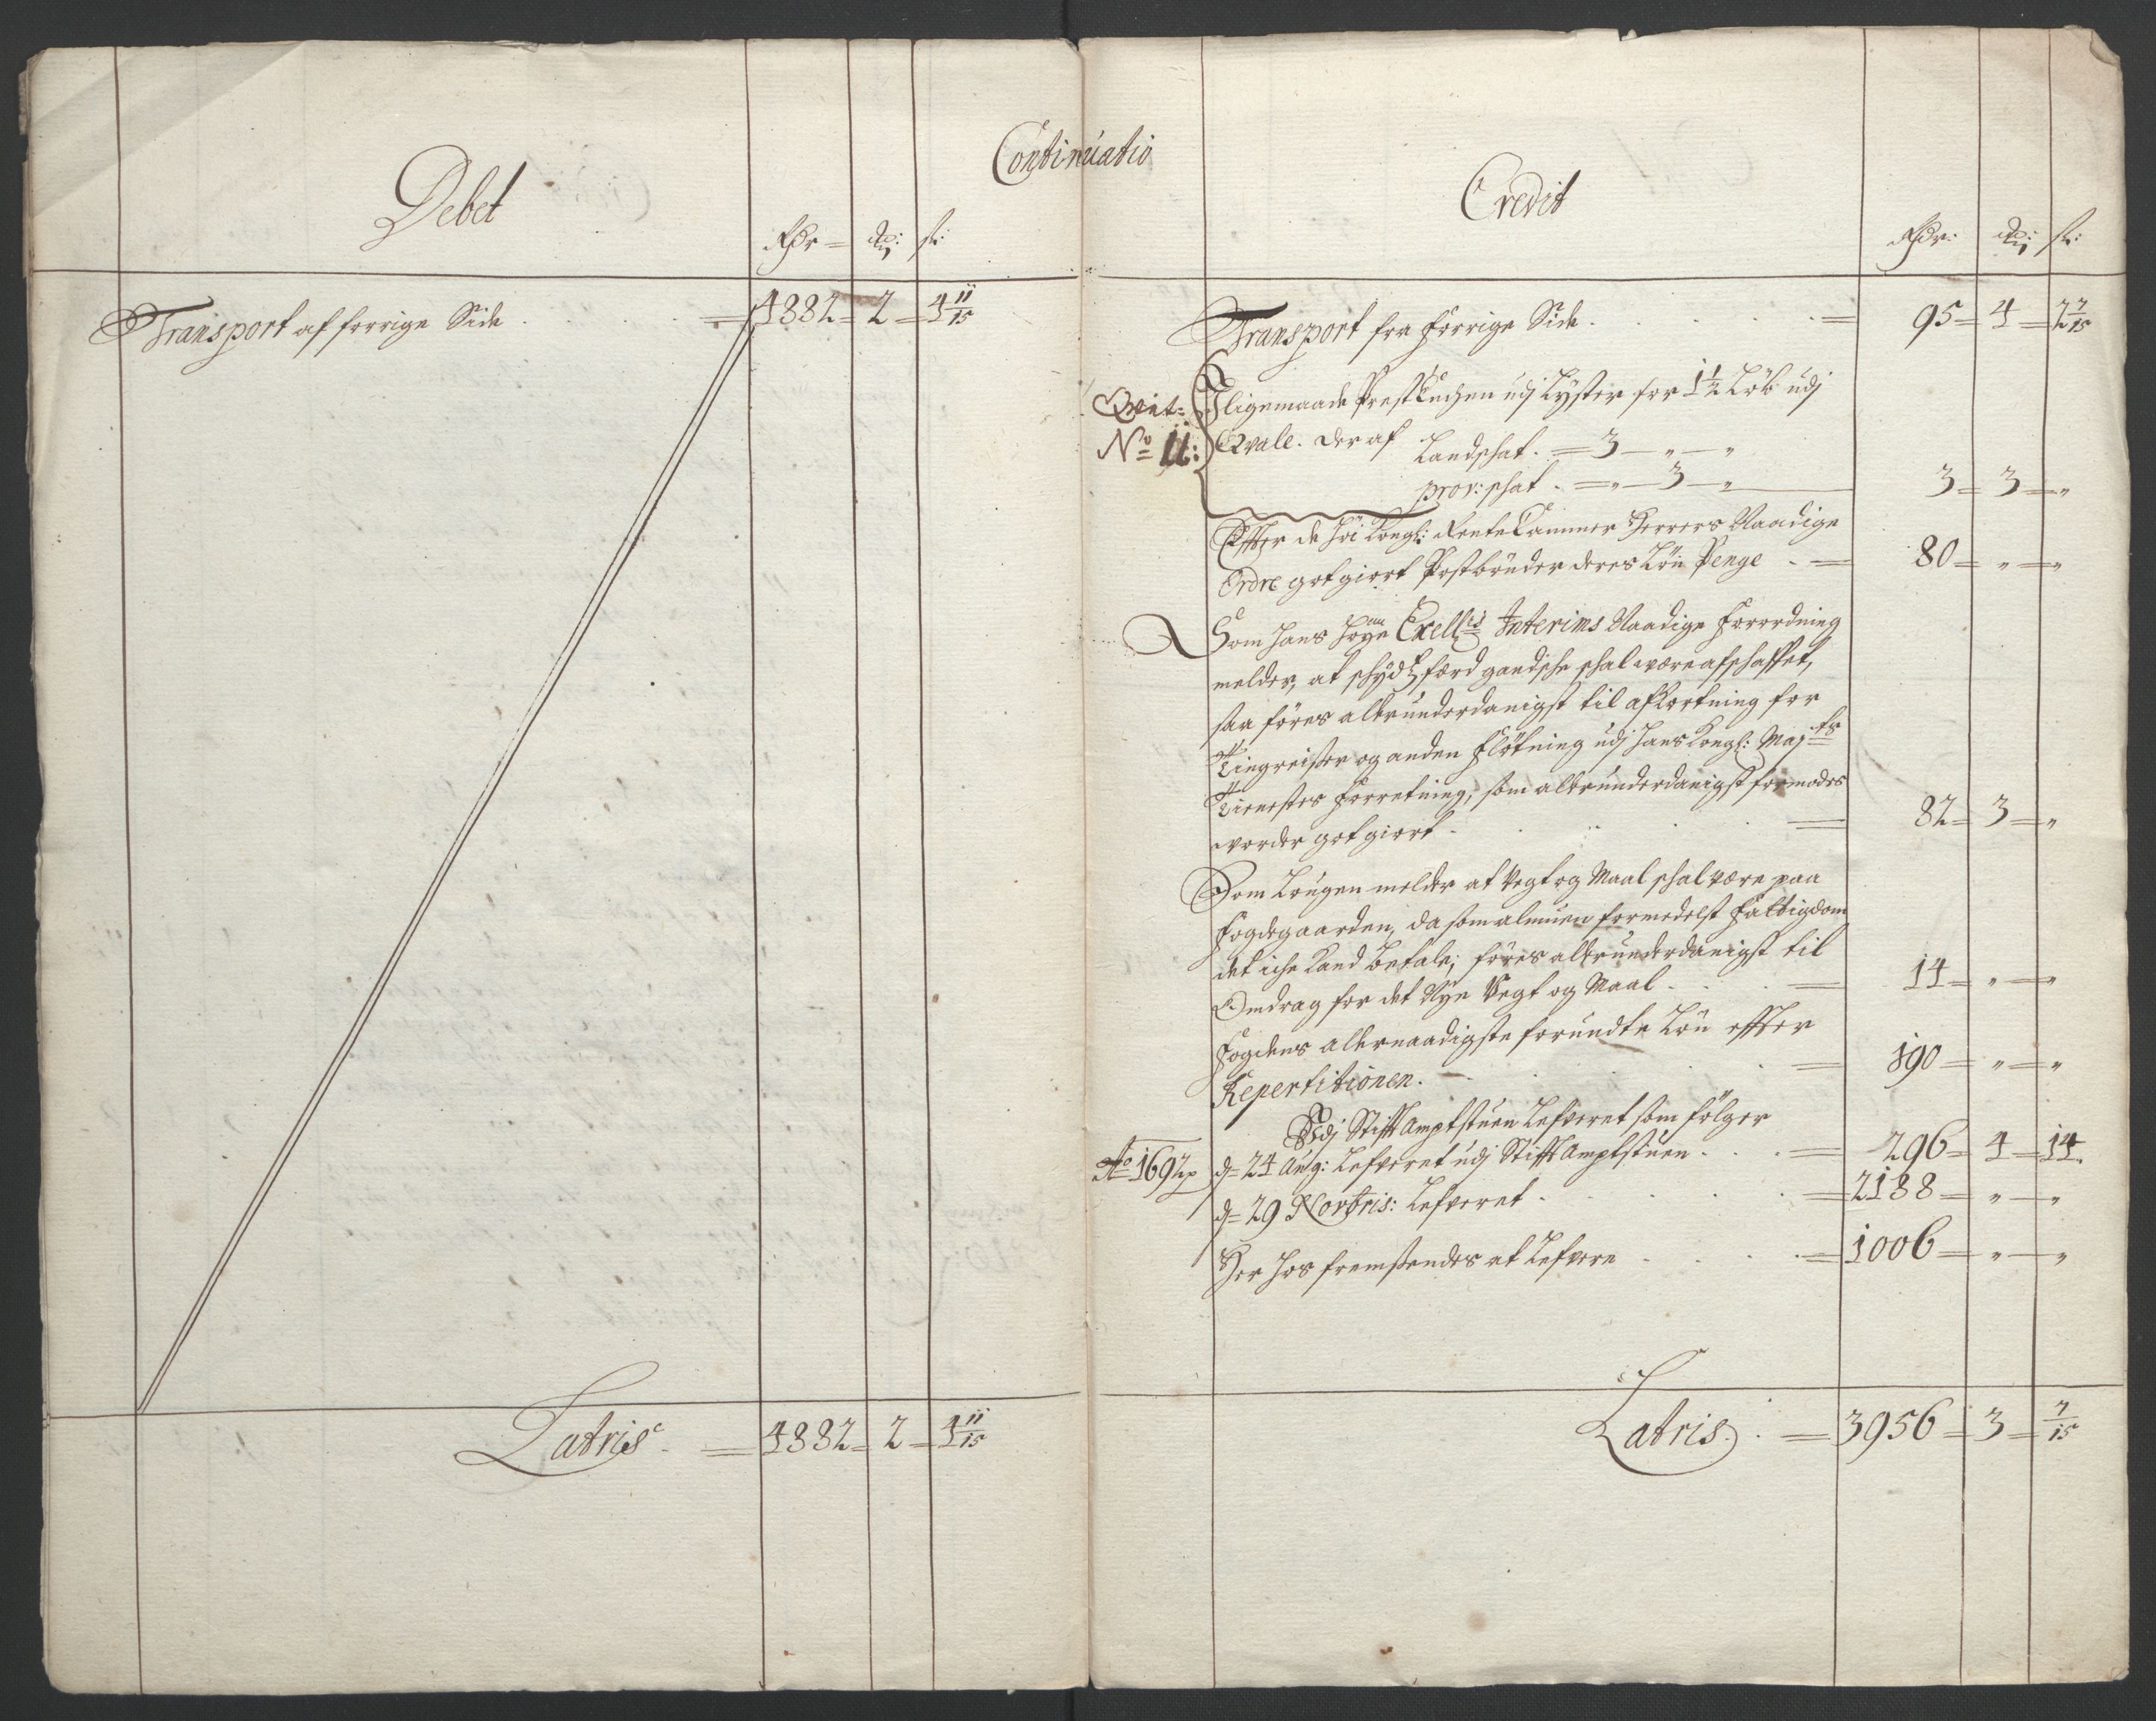 Continuatio
Debet
Rdr = ℔: sk:
Transport af forrige Side . . . . = 4882 = 2 = 4 11/15
Latris = 4882 = 2 = 4 11/15
Credit
Rdr: ℔: sk:
Transport fra forrige Side . . . . = 95 = 4 = 2 7/15
Qvit: No 11:
Iligemaade Prestkuchen udj Lyster for 1½ Løb udj
Qvale. der af Landschat. = 3 — „ — „
prov: schat . = „ — 3 — „ 3 = 3 = „
Effter de høi Kongl: Rente Cammer Herrers Naadige
Ordre got giort Postbønder deres Løn Penge . = 80 = „ = „
Som hans høye Excell: Interims Naadige forordning
melder, at schydtzferd gandsche schal være afschaffet,
saa føres allerunderdanigst til afkortning for
Tingreiser og anden fløtning udj hans Kongl: Maj:ts
Tienestes forretning, som allerunderdanigst formodes
vorder got giort . . . = 82 = 3 = „
Som Lougen melder at Vegt og Maal schal være paa
fogdegaarden, da som almuen formedelst fattigdom
det iche kand betale, føres allerunderdanigst til
Omdrag for det Nye Vegt og Maal . . . = 14 = „ = „
Fogdens allernaadigste forundte Løn effter
Repertitionen . . . = 190 = „ = „
Udj Stifft Amptstuen Lefveret som følger
Ao 1692 d= 24 Aug: Lefveret udj Stifft Amptstuen . . . = 296 = 4 = 14.
d= 29 Novbris: Lefveret . . . = 2188 = „ = „
Her hos fremsendes at Lefvere . . . = 1006 = „ = „
Latris . = 3956 = 3 = 7/15